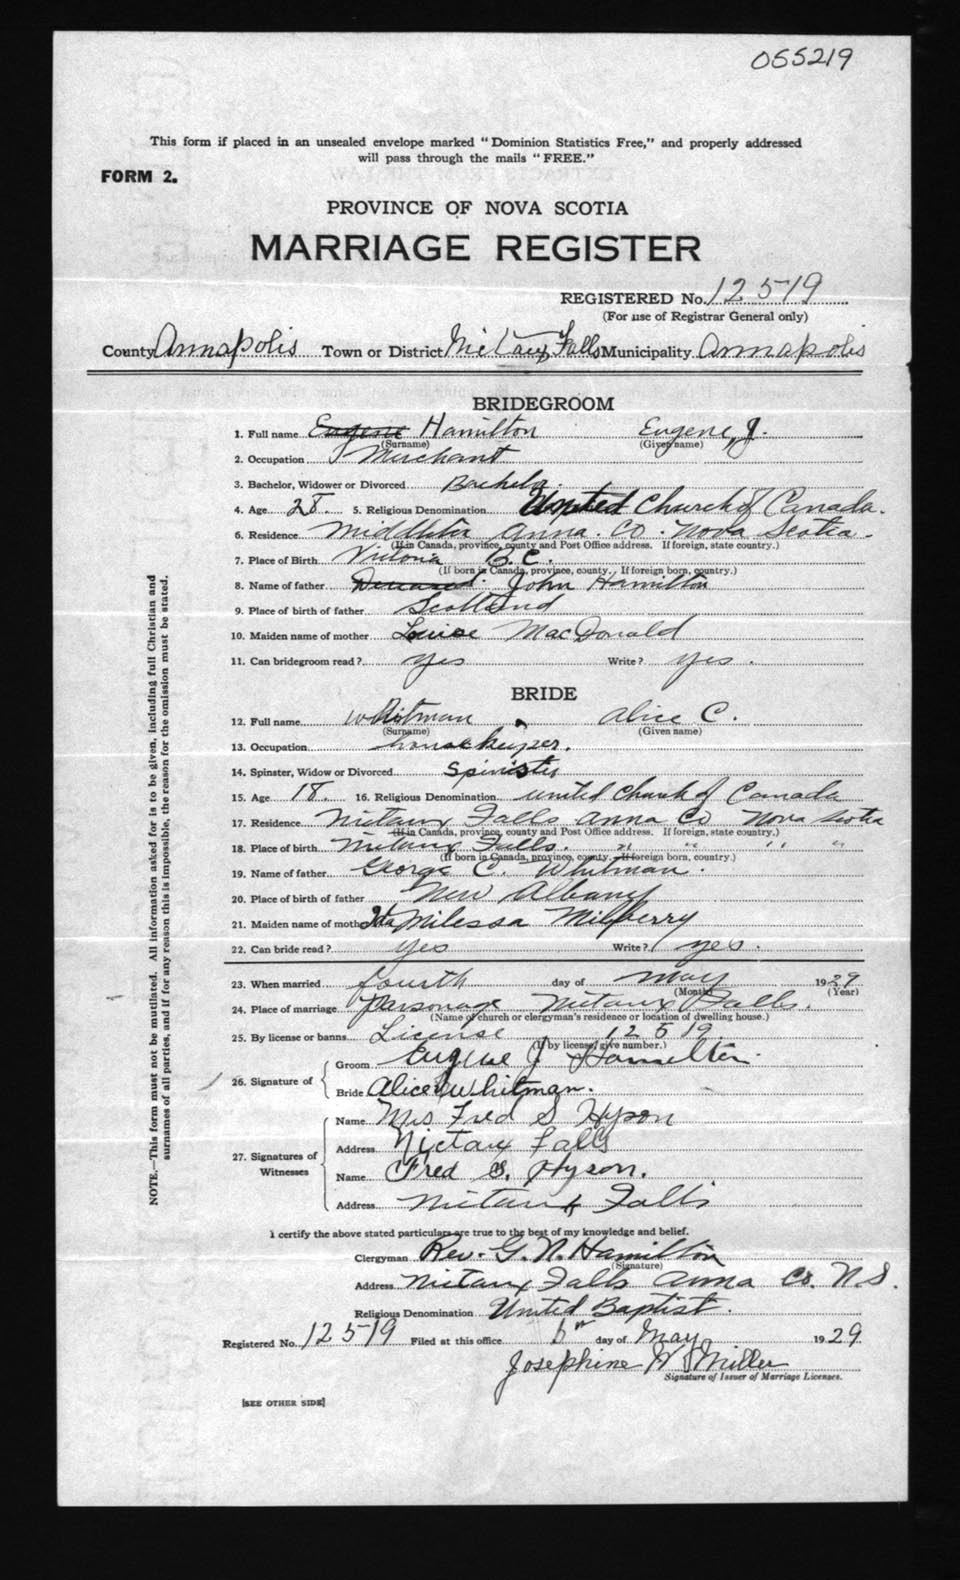 055219
This form if placed in an unsealed envelope marked "Dominion Statistics Free," and properly addressed
will pass through the mails "FREE."
FORM 2.
PROVINCE OF NOVA SCOTIA
MARRIAGE REGISTER
REGISTERED No. 12519
(For use of Registrar General only)
County Annapolis Town or District Nictaux Falls Municipality Annapolis
BRIDEGROOM
1. Full name Eugene Hamilton Eugene J.
(Surname) (Given name)
2. Occupation Merchant
3. Bachelor, Widower or Divorced Bachelor.
4. Age 28. 5. Religious Denomination United Church of Canada.
6. Residence Middleton Anna. Co. Nova Scotia.
(If in Canada, province, county and Post Office address. If foreign, state country.)
7. Place of Birth Victoria B.C.
(If born in Canada, province, county. If foreign born, country.)
8. Name of father Deceased. John Hamilton
9. Place of birth of father Scotland
10. Maiden name of mother Louise MacDonald
11. Can bridegroom read? yes Write? yes.
BRIDE
12. Full name Whitman, Alice C.
(Surname) (Given name)
13. Occupation housekeeper.
14. Spinster, Widow or Divorced Spinster
15. Age 18. 16. Religious Denomination United Church of Canada
17. Residence Nictaux Falls Anna Co Nova Scotia
(If in Canada, province, county and Post Office address. If foreign, state country.)
18. Place of birth Nictaux Falls. " " " "
(If born in Canada, province, county. If foreign born, country.)
19. Name of father George C. Whitman.
20. Place of birth of father New Albany
21. Maiden name of mother Ida Milessa Milberry
22. Can bride read? yes Write? yes.
23. When married fourth day of May 1929
(Month) (Year)
24. Place of marriage Parsonage Nictaux Falls.
(Name of church or clergyman's residence or location of dwelling house.)
25. By license or banns License 12519
(If by license, give number.)
26. Signature of
Groom Eugene J Hamilton.
Bride Alice C Whitman.
27. Signatures of Witnesses
Name Mrs Fred S Hyson
Address Nictaux Falls
Name Fred S. Hyson.
Address Nictaux Falls
I certify the above stated particulars are true to the best of my knowledge and belief.
Clergyman Rev. G. N. Hamilton
(Signature)
Address Nictaux Falls Anna Co. N.S.
Religious Denomination United Baptist.
Registered No. 12519 Filed at this office 6th day of May 1929
Josephine W Miller
Signature of Issuer of Marriage Licenses.
[SEE OTHER SIDE]
NOTE.—This form must not be mutilated. All information asked for is to be given, including full Christian and
surnames of all parties, and if for any reason this is impossible, the reason for the omission must be stated.